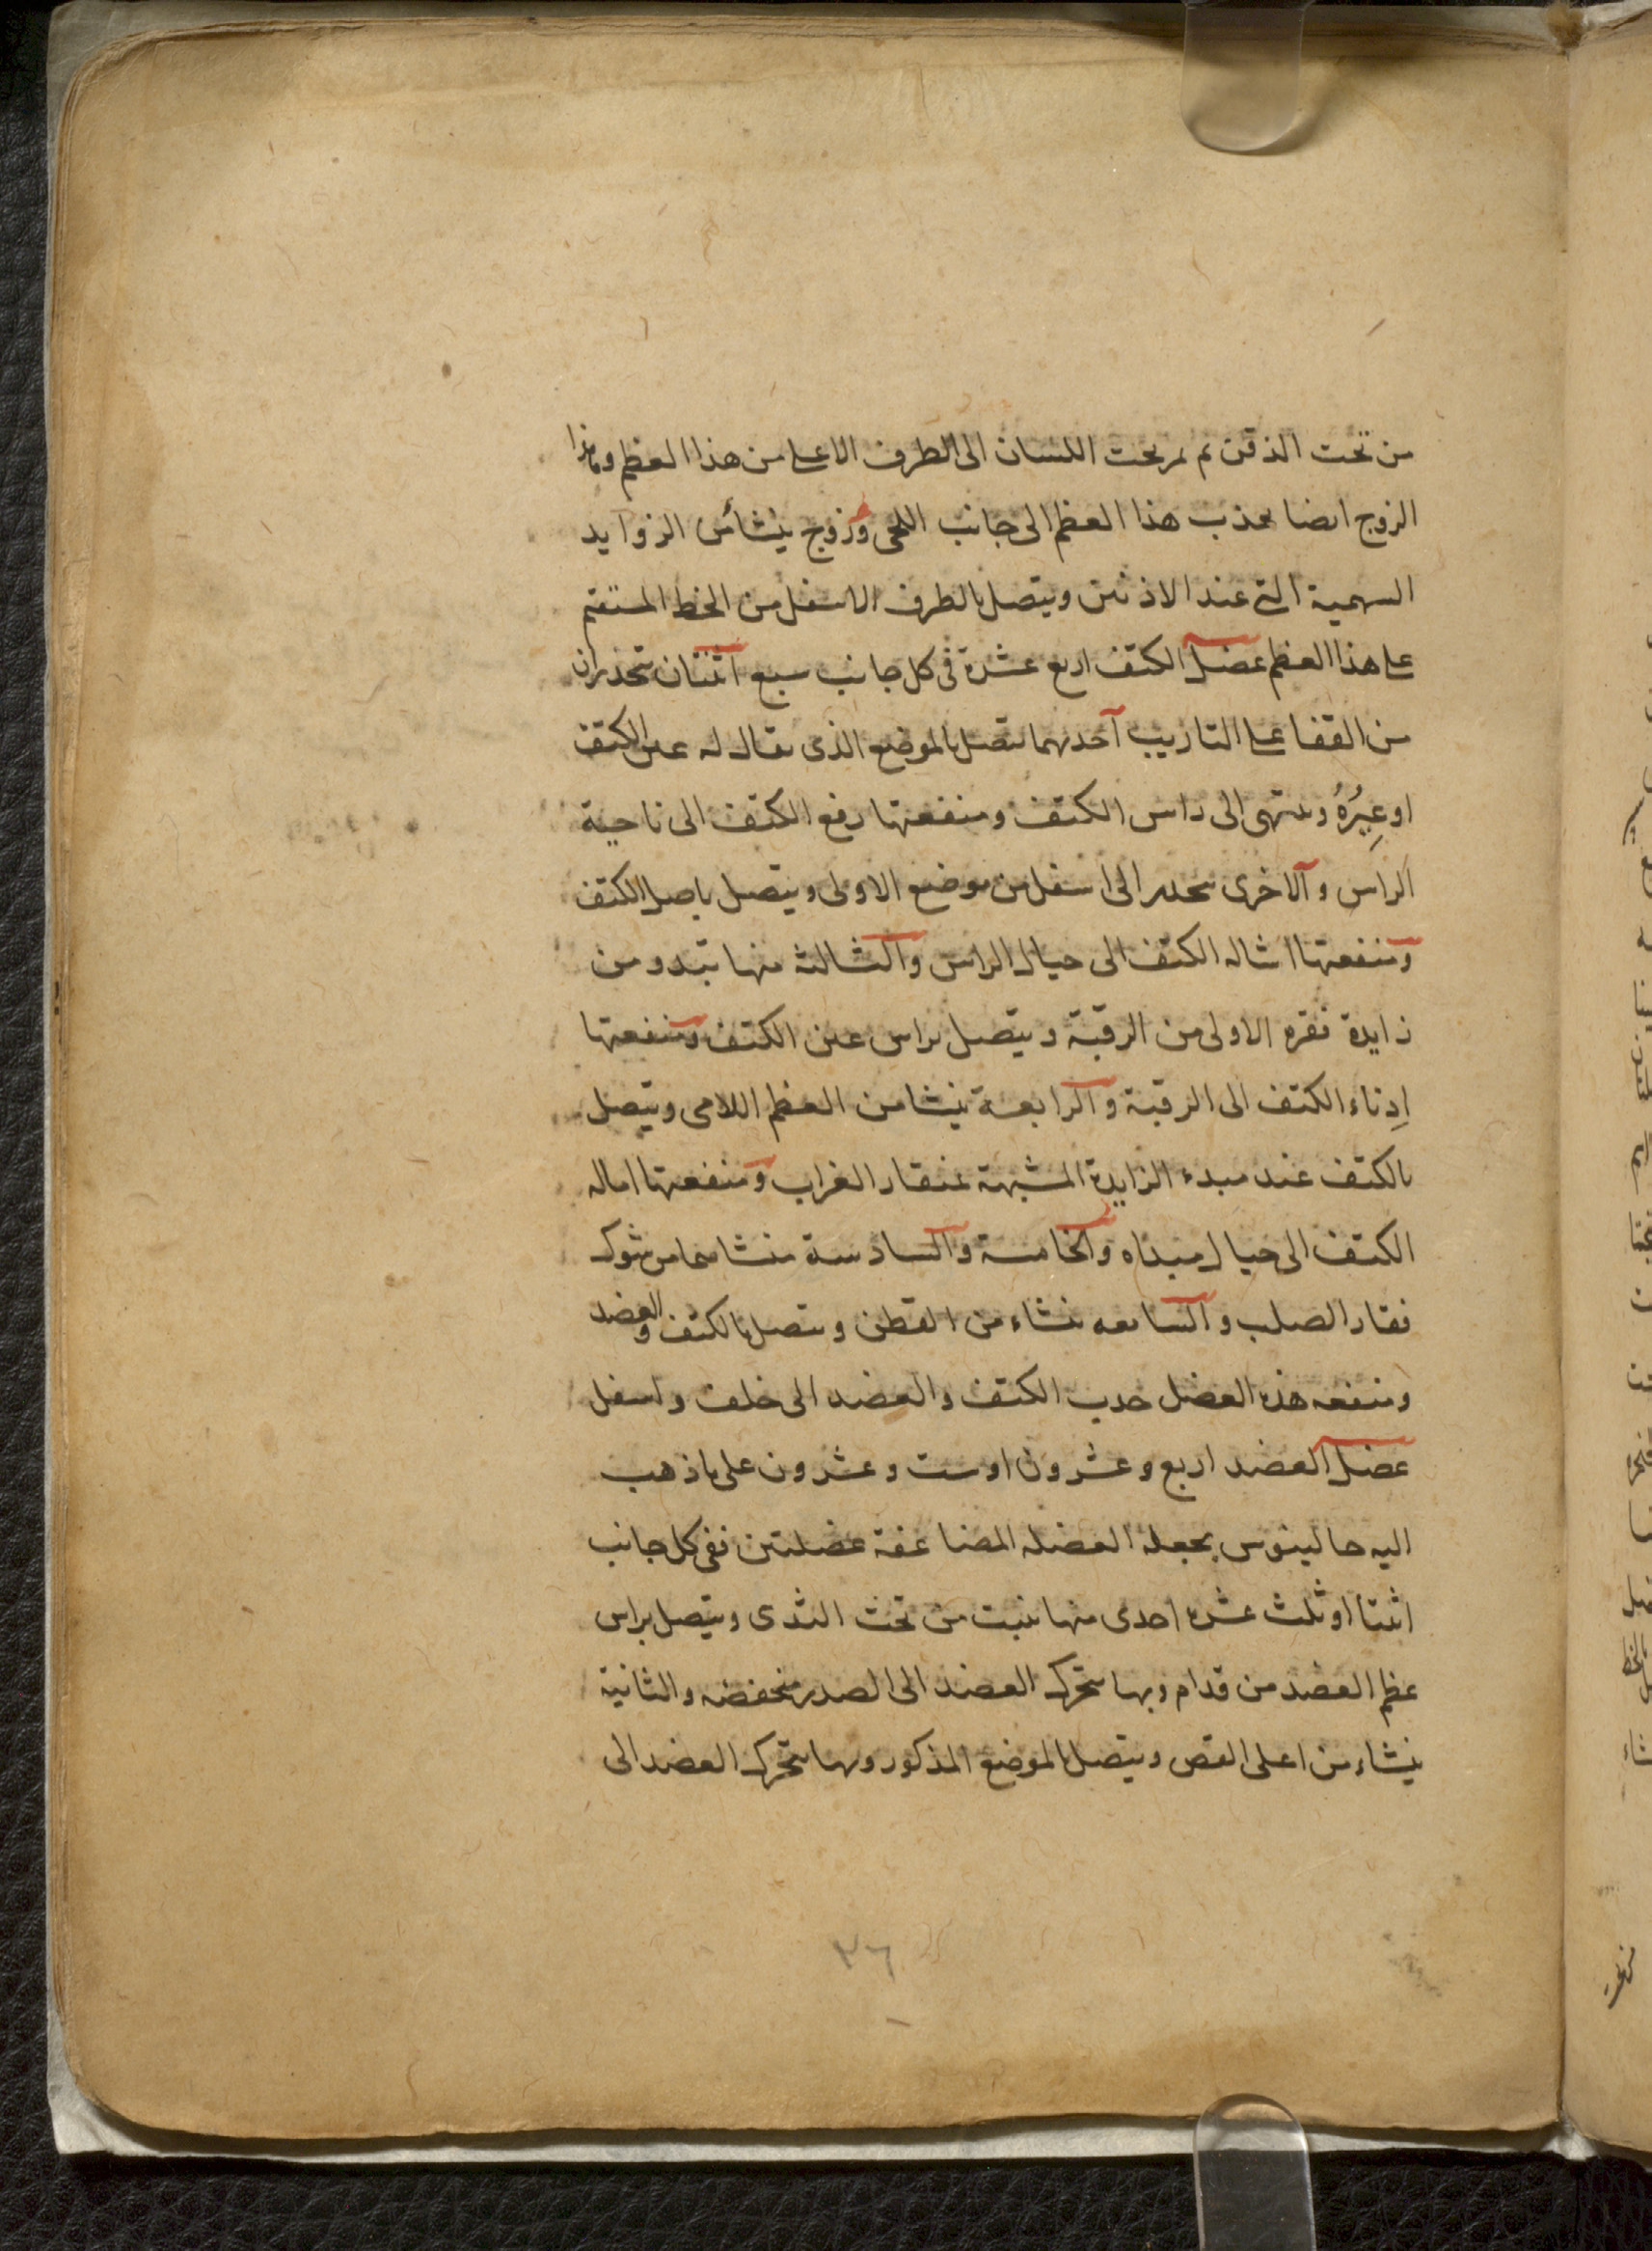 من تحت الذقن ثم يمر تحت اللسان الى الطرف الاعلى من هذا العظم وهذا
الزوج ايضا يجذب هذا العظم الى جانب اللحى وزوج ينشأ من الزوايد
السهمية التى عند الاذنين ويتصل بالطرف الاسفل من الخط المستقيم
على هذا العظم عضل الكتف اربع عشرة فى كل جانب سبع اثنتان تنحدران
من القفا على التاريب احدهما تتصل بالموضع الذى يقال له عين الكتف
او عِيرُهُ وينتهى الى راس الكتف ومنفعتها رفع الكتف الى ناحية
الراس والاخرى تنحدر الى اسفل من موضع الاولى ويتصل باصل الكتف
ومنفعتها اشاله الكتف الى حيال الراس والثالثة منها تبدو من
زايدة فقره الاولى من الرقبة ويتصل براس عين الكتف ومنفعتها
اِدناء الكتف الى الرقبة والرابعة ينشا من العظم اللامى ويتصل
بالكتف عند مبدء الزايدة المشبهة بمنقار الغراب ومنفعتها اماله
الكتف الى حيال مبداه والخامسة والسادسة منشاهما من شوك
فقار الصلب والسابعه تنشاء من القطن وتتصل بالكتف والعضد
ومنفعه هذه العضل جذب الكتف والعضد الى خلف واسفل
عضل العضد اربع وعشرون او ست وعشرون على ما ذهب
اليه جالينوس بجعله العضله المضاعفة عضلتين ففى كل جانب
اثنتا او ثلث عشره احدى منها ينبت من تحت الثدى ويتصل براس
عظم العضد من قدام وبها يتحرك العضد الى الصدر منخفضه والثانية
ينشاء من اعلى القص ويتصل بالموضع المذكور وبها يتحرك العضد الى
٣٦